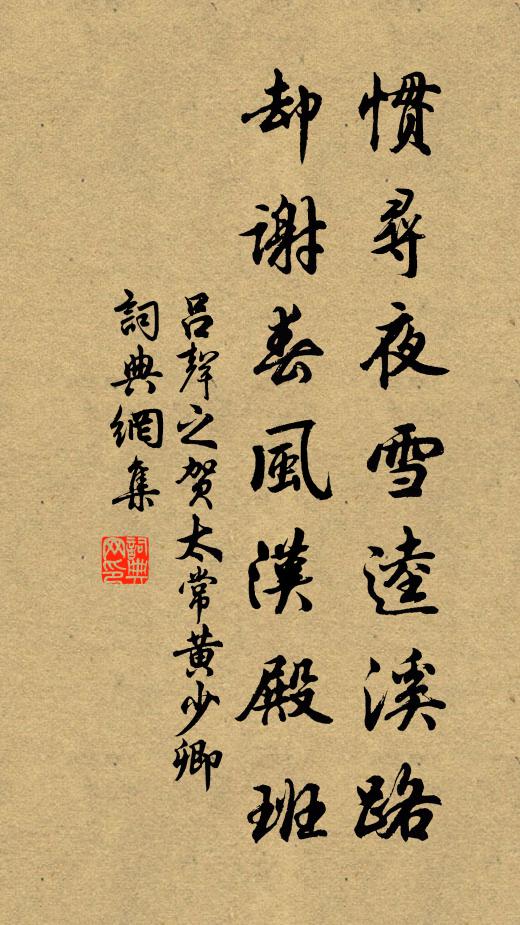 慣尋夜雪逵溪路
却謝春風漢殿班
呂聲之賀太常黃少卿
詞典網集
詞典網印